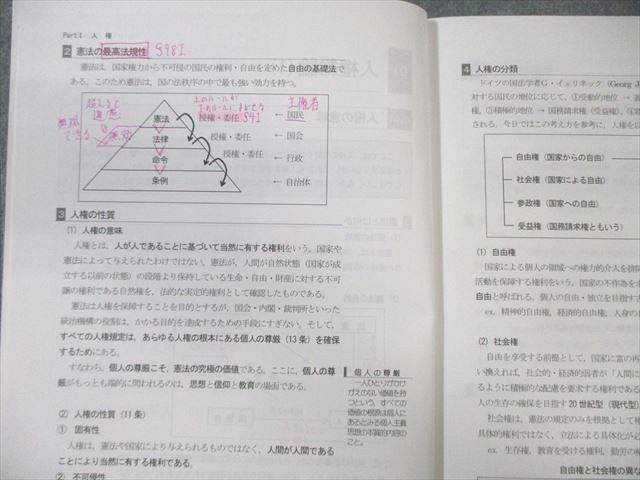 Part I 人 権
2 憲法の最高法規性 §98Ⅰ
憲法は、国家権力から不可侵の国民の権利・自由を定めた自由の基礎法で
ある。このため憲法は、国の法秩序の中で最も強い効力を持つ。
主権者
憲法
授権・委任 §41
国民
法律
授権・委任
国会
命令
授権・委任
行政
条例
自治体
3 人権の性質
(1) 人権の意味
人権とは、人が人であることに基づいて当然に有する権利をいう。国家や
憲法によって与えられたわけではない。憲法が、人間が自然状態（国家が成
立する以前の状態）の段階より保持している生命・自由・財産に対する不可
譲の権利である自然権を、法的な実定的権利として確認したものである。
憲法は人権を保障することを目的とするが、国会・内閣・裁判所といった
統治機構の役割は、かかる目的を達成するための手段にすぎない。そして、
すべての人権規定は、あらゆる人権の根本にある個人の尊厳（13 条）を確保
するためにある。
すなわち、個人の尊厳こそ、憲法の究極の価値である。ここに、個人の尊
厳がもっとも端的に問われるのは、思想と信仰と教育の場面である。
個 人 の 尊 厳
一人ひとりがかけ
がえのない価値を持
つという、すべての
価値の根源は個人に
あるとみる個人主義
思想の本質的内容の
こと。
(2) 人権の性質（11 条）
① 固有性
人権は、憲法や国家により与えられるものではなく、人間が人間である
ことにより当然に有する権利である。
② 不可侵性
4 人権の分類
ドイツの国法学者G・イェリネック（Georg J
対する国民の地位に応じて、①受動的地位 →
権、③積極的地位 → 国務請求権（受益権）、④
される。今日ではこの考え方を参考に、人権を以
自由権（国家からの自由）
社会権（国家による自由）
参政権（国家への自由）
受益権（国務請求権ともいう）
(1) 自由権
国家による個人の領域への権力的介入を排
活動を保障する権利をいう。国家の不作為を
自由と呼ばれる。個人の自由・独立を目指す
ex. 精神的自由権、経済的自由権、人身の
(2) 社会権
自由を享受する前提として、国家に富の再
い換えれば、社会的・経済的弱者が「人間に
るように積極的な配慮を要求する権利である
人の生存の確保を目指す 20 世紀型（現代型）
社会権は、憲法の規定のみを根拠として権
具体的権利ではなく、立法による具体化が必
ex. 生存権、教育を受ける権利、勤労の権
自由権と社会権の異な